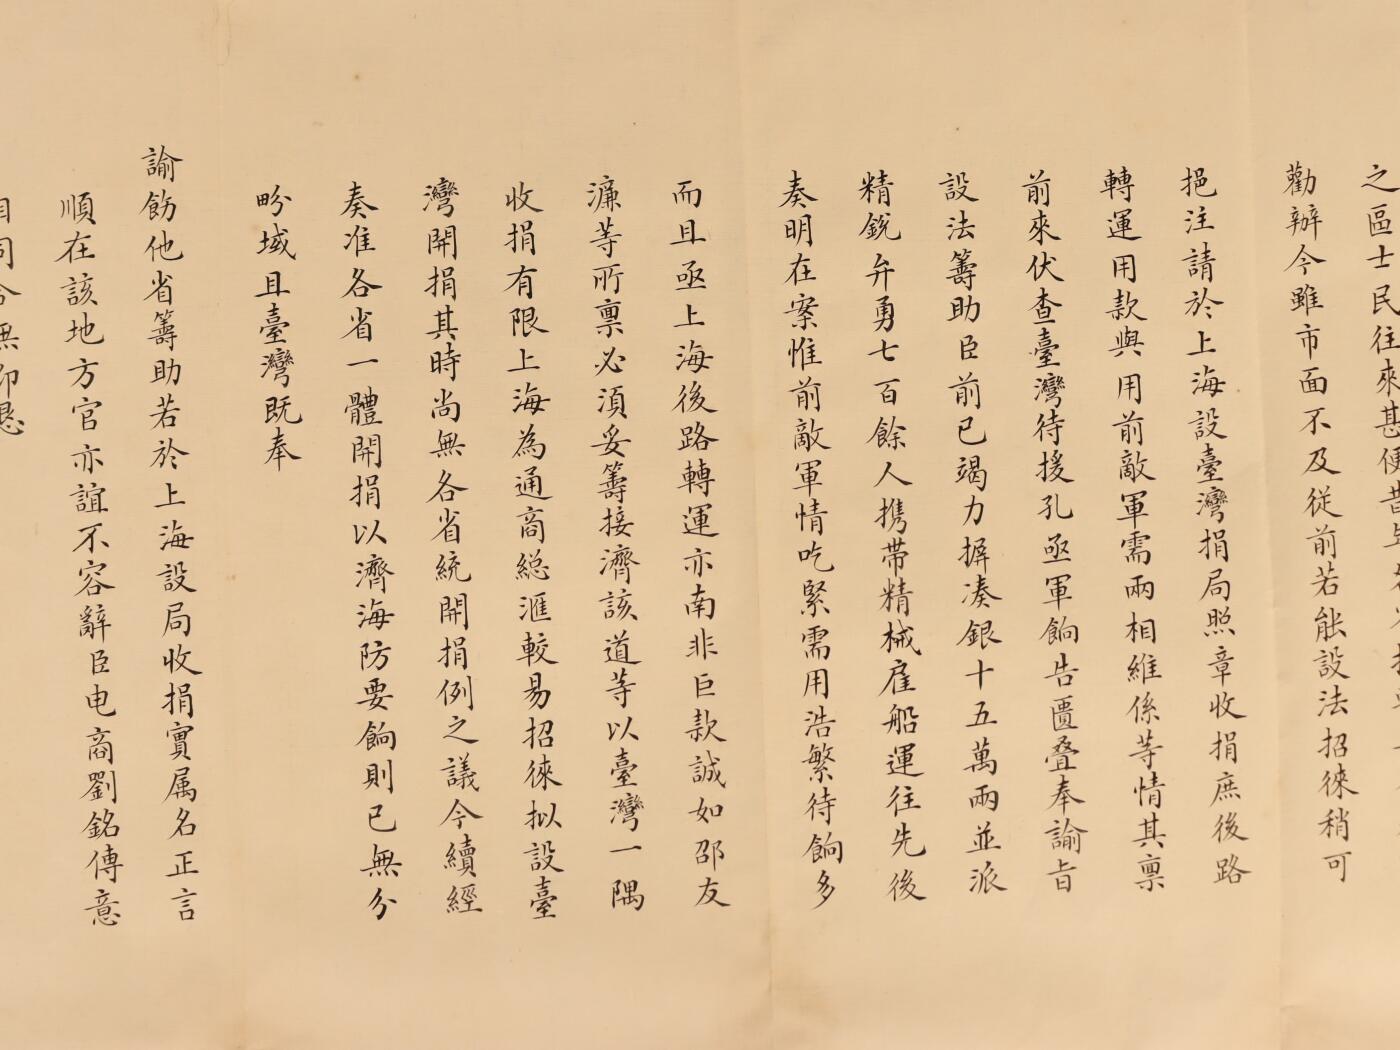 之區士民往來甚便昔
勸辦今雖市面不及從前若能設法招徠稍可
挹注請於上海設臺灣捐局照章收捐庶後路
轉運用款與用前敵軍需兩相維係等情其稟
前來伏查臺灣待援孔亟軍餉告匱疊奉諭旨
設法籌助臣前已竭力摒湊銀十五萬兩並派
精銳弁勇七百餘人携帶精械雇船運往先後
奏明在案惟前敵軍情吃緊需用浩繁待餉多
而且亟上海後路轉運亦南非巨款誠如邵友
濂等所稟必須妥籌接濟該道等以臺灣一隅
收捐有限上海為通商總滙較易招徠拟設臺
灣開捐其時尚無各省統開捐例之議今續經
奏准各省一體開捐以濟海防要餉則已無分
畛域且臺灣既奉
諭飭他省籌助若於上海設局收捐實属名正言
順在該地方官亦誼不容辭臣电商劉銘傳意